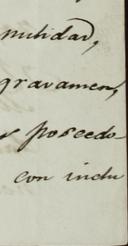 nulidad,
gravamen,
s poseedo-
con inclu